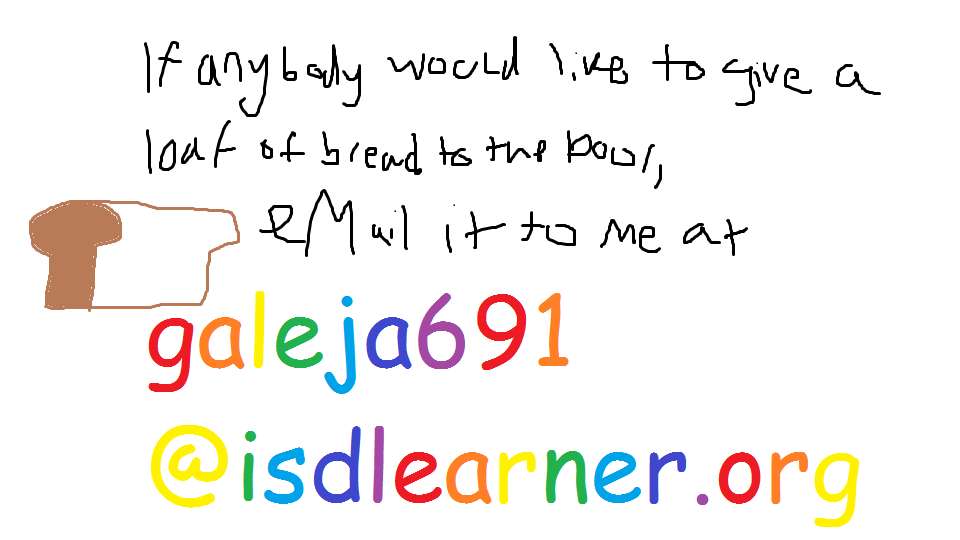 If anybody would like to give a
loaf of bread to the poor,
eMail it to me at
galeja691
@isdlearner.org